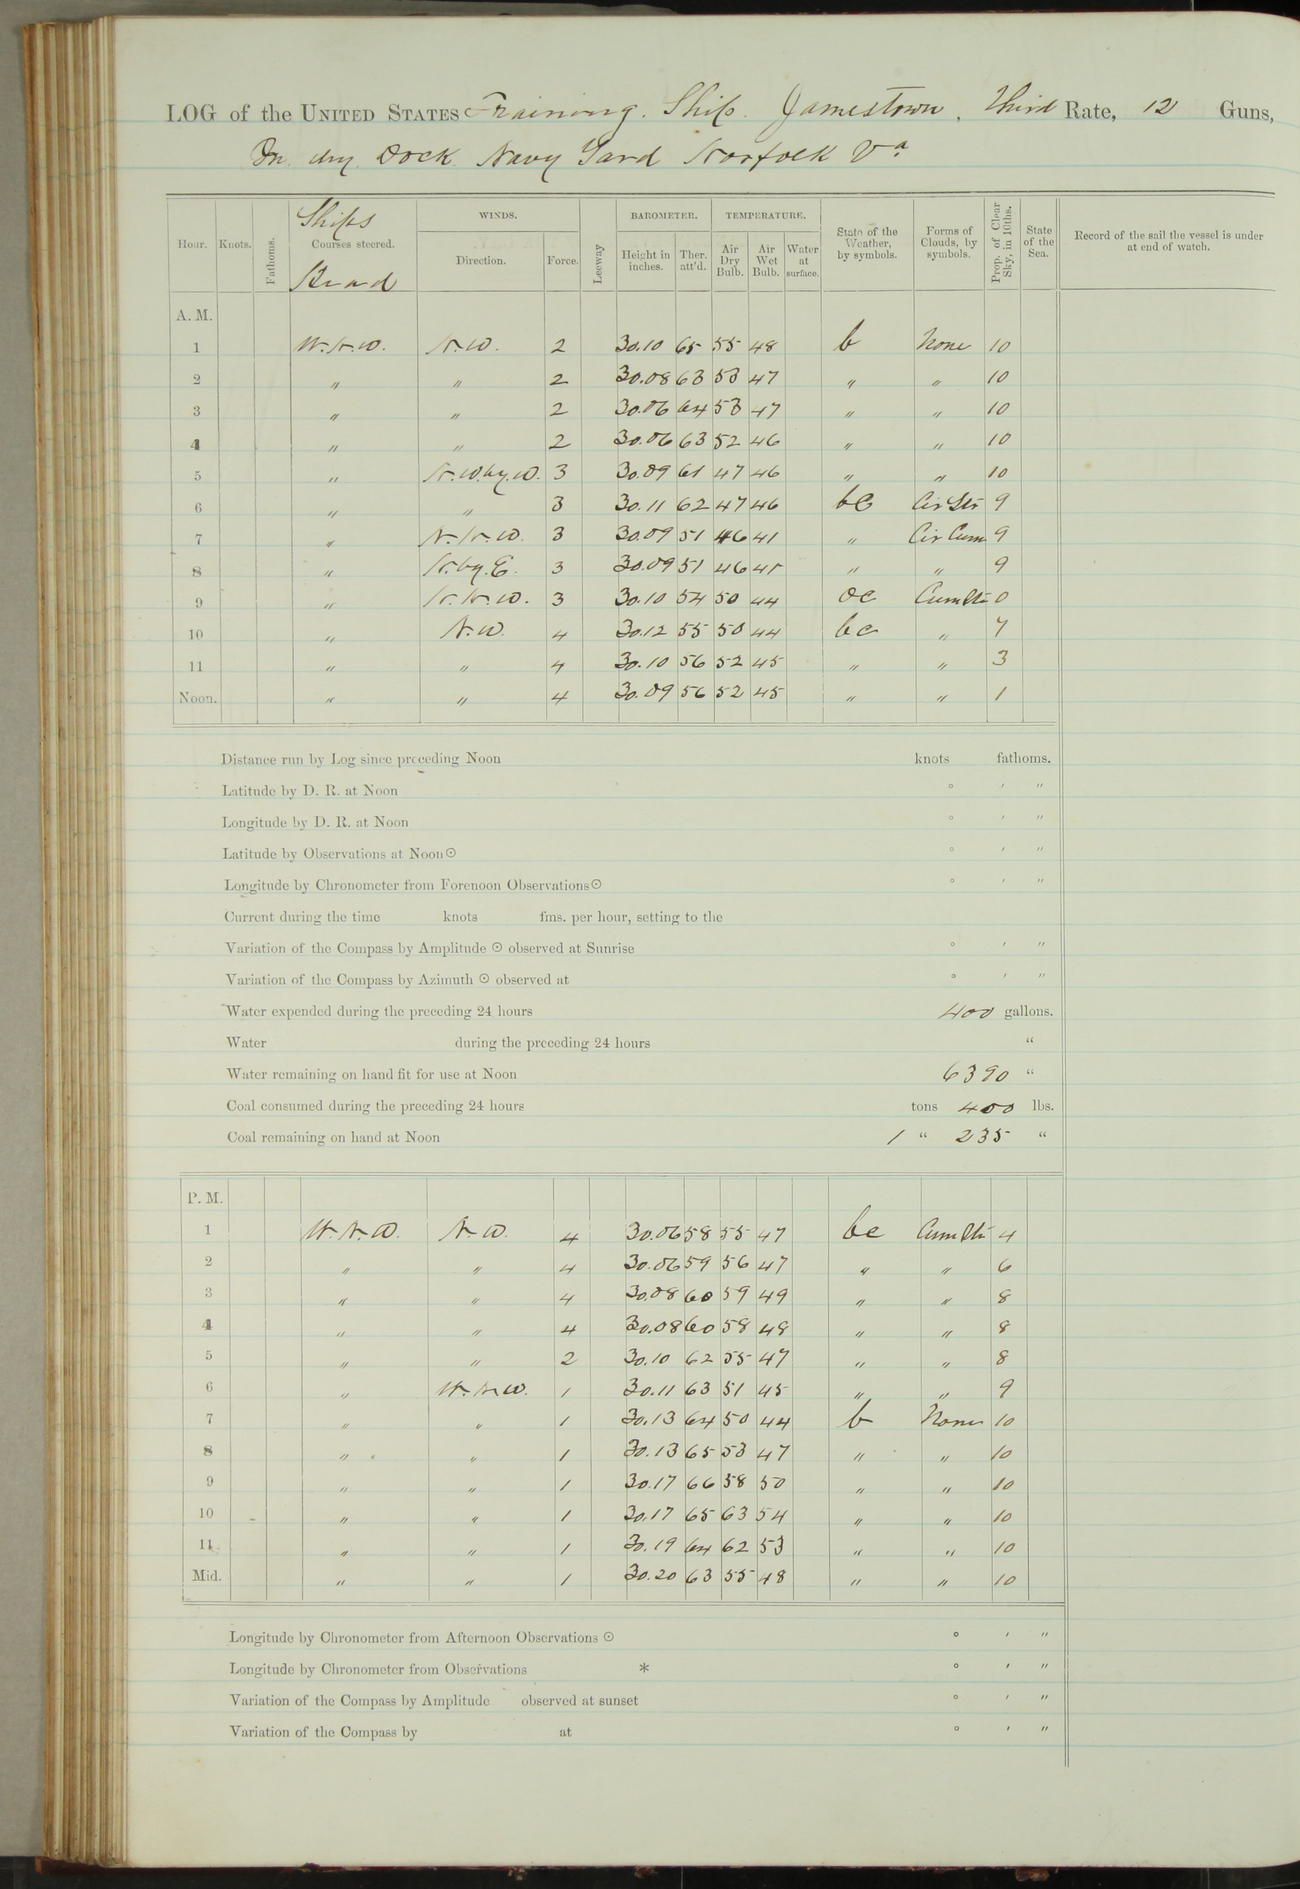 LOG of the UNITED STATES Training Ship Jamestown, Third Rate, 12 Guns,
In dry Dock Navy Yard Norfolk Va
Hour. Knots. Fathoms. Ships Courses steered. Head WINDS. Direction. Force. Leeway BAROMETER. Height in inches. Ther. att'd. TEMPERATURE. Air Dry Bulb. Air Wet Bulb. Water at surface. State of the Weather, by symbols. Forms of Clouds, by symbols. Prop. of Clear Sky, in 10ths. State of the Sea. Record of the sail the vessel is under at end of watch.
A. M.
1 W.N.W. N.W. 2 30.10 65 55 48 b None 10
2 " " 2 30.08 63 53 47 " " 10
3 " " 2 30.06 64 53 47 " " 10
4 " " 2 30.06 63 52 46 " " 10
5 " N.W.by.W. 3 30.09 61 47 46 " " 10
6 " " 3 30.11 62 47 46 bc Cir Str 9
7 " N.N.W. 3 30.09 51 46 41 " Cir Cum 9
8 " N.by.E. 3 30.09 51 46 41 " " 9
9 " N.N.W. 3 30.10 54 50 44 oc Cum Str 0
10 " N.W. 4 30.12 55 50 44 bc " 7
11 " " 4 30.10 56 52 45 " " 3
Noon. " " 4 30.09 56 52 45 " " 1
Distance run by Log since preceding Noon knots fathoms.
Latitude by D. R. at Noon ° ' "
Longitude by D. R. at Noon ° ' "
Latitude by Observations at Noon ☉ ° ' "
Longitude by Chronometer from Forenoon Observations ☉ ° ' "
Current during the time knots fms. per hour, setting to the
Variation of the Compass by Amplitude ☉ observed at Sunrise ° ' "
Variation of the Compass by Azimuth ☉ observed at ° ' "
Water expended during the preceding 24 hours 400 gallons.
Water during the preceding 24 hours "
Water remaining on hand fit for use at Noon 6390 "
Coal consumed during the preceding 24 hours tons 400 lbs.
Coal remaining on hand at Noon 1 " 235 "
P. M.
1 W.N.W. N.W. 4 30.06 58 55 47 bc Cum Str 4
2 " " 4 30.06 59 56 47 " " 6
3 " " 4 30.08 60 59 49 " " 8
4 " " 4 30.08 60 58 48 " " 8
5 " " 2 30.10 62 55 47 " " 8
6 " W.N.W. 1 30.11 63 51 45 " " 9
7 " " 1 30.13 64 50 44 b None 10
8 " " 1 30.13 65 53 47 " " 10
9 " " 1 30.17 66 58 50 " " 10
10 " " 1 30.17 65 63 54 " " 10
11 " " 1 30.19 64 62 53 " " 10
Mid. " " 1 30.20 63 55 48 " " 10
Longitude by Chronometer from Afternoon Observations ☉ ° ' "
Longitude by Chronometer from Observations * ° ' "
Variation of the Compass by Amplitude observed at sunset ° ' "
Variation of the Compass by at ° ' "